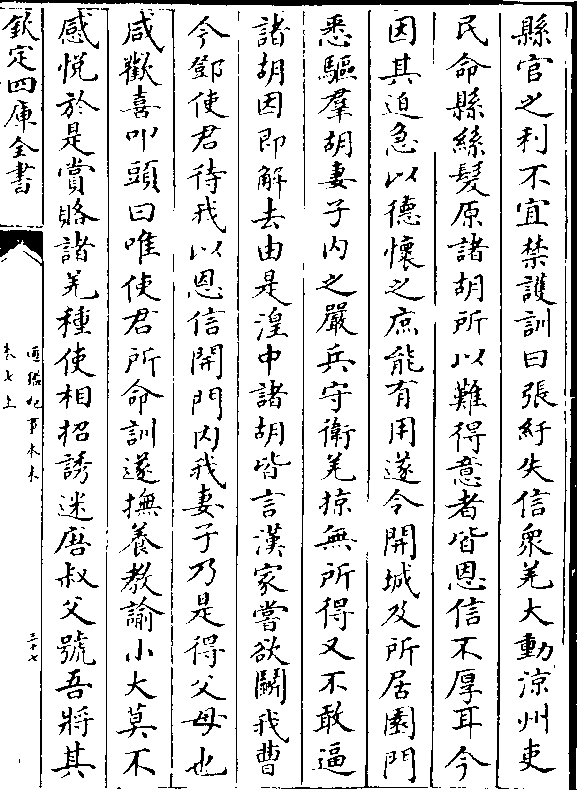 縣官之利不宜禁護訓曰張紆失信衆羌大動涼州吏
民命縣絲髮原諸胡所以難得意者皆恩信不厚耳今
因其迫急以德懷之庶能有用遂令開城及所居園門
悉驅羣胡妻子内之嚴兵守衛羌掠無所得又不敢逼
諸胡因即解去由是湟中諸胡皆言漢家嘗欲鬭我曹
今鄧使君待我以恩信開門内我妻子乃是得父母也
咸歡喜叩頭曰唯使君所命訓遂撫養教諭小大莫不
感悦於是賞賂諸羌種使相招誘迷唐叔父號吾將其
欽定四庫全書
通鑑紀事本末
卷七上
三十七